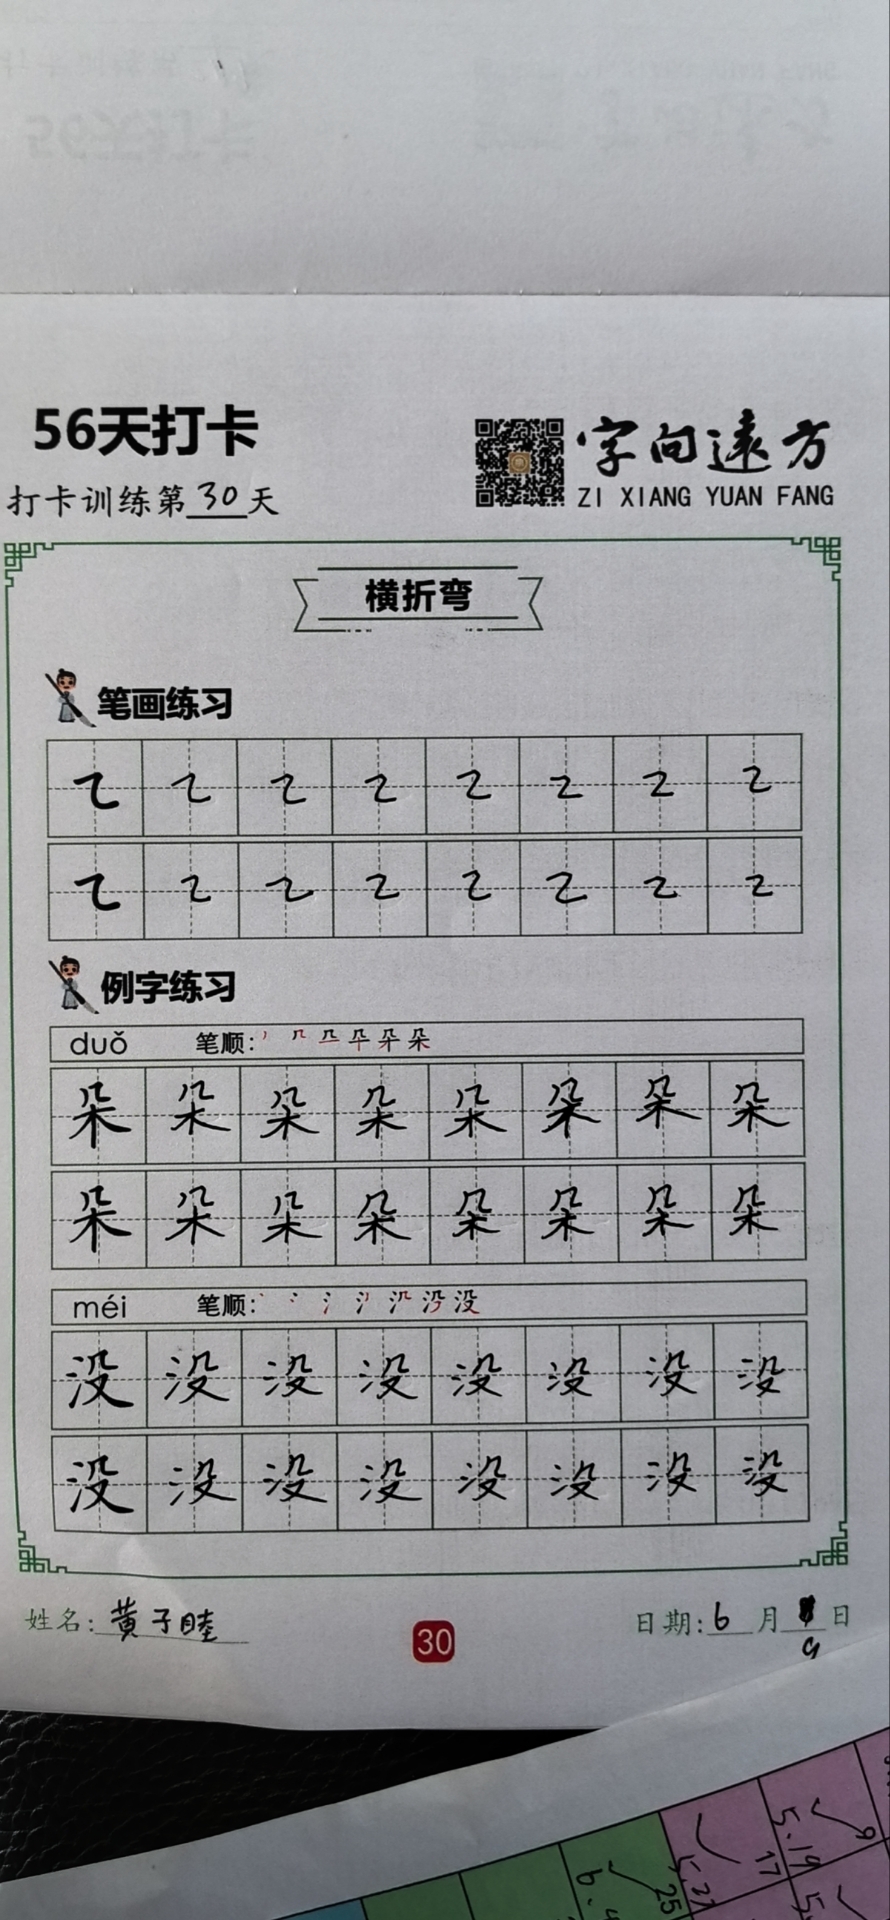 56天打卡
字向遠方
打卡训练第30天
ZI XIANG YUAN FANG
横折弯
笔画练习
㇍ ㇍ ㇍ ㇍ ㇍ ㇍ ㇍ ㇍
㇍ ㇍ ㇍ ㇍ ㇍ ㇍ ㇍ ㇍
例字练习
duǒ 笔顺: 朵
朵 朵 朵 朵 朵 朵 朵 朵
朵 朵 朵 朵 朵 朵 朵 朵
méi 笔顺: 没
没 没 没 没 没 没 没 没
没 没 没 没 没 没 没 没
姓名: 黄子睦
30
日期: 6月 日
9
5.19
9
17
25